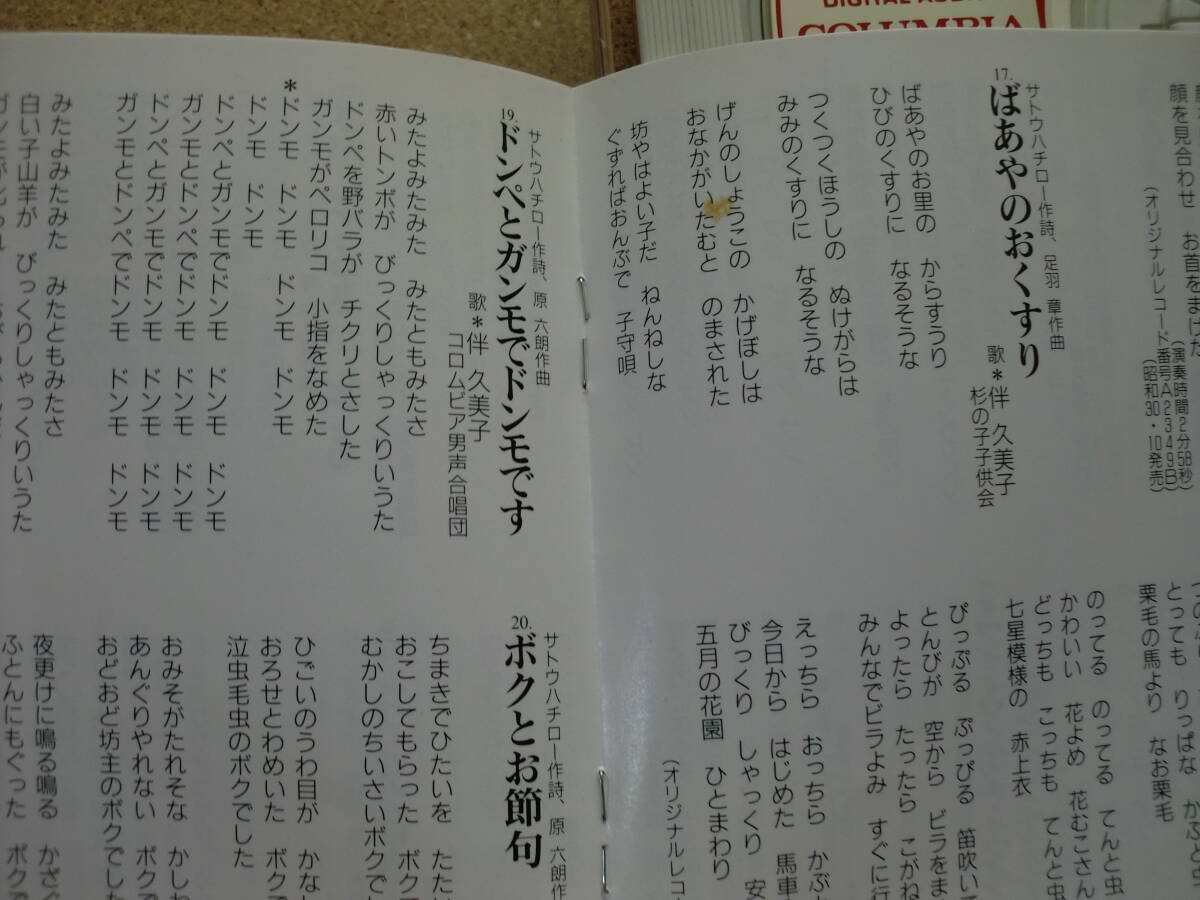 DIGITAL AUDIO
COLUMBIA
顔を見合わせ　お首をまげた
(演奏時間2分58秒)
番号A2349B)
(オリジナルレコード
(昭和30・10発売)
17.
ばあやのおくすり
サトウハチロー作詩、足羽 章作曲
歌*伴 久美子
杉の子子供会
ばあやのお里の　からすうり
ひびのくすりに　なるそうな
つくつくほうしの　ぬけがらは
みみのくすりに　なるそうな
げんのしょうこの　かげぼしは
おなかがいたむと　のまされた
坊やはよい子だ　ねんねしな
ぐずればおんぶで　子守唄
とっても　りっぱな　かぶと虫
栗毛の馬より　なお栗毛
のってる　のってる　てんと虫
かわいい　花よめ　花むこさん
どっちも　こっちも　てんと虫
七星模様の　赤上衣
ぴっぷる　ぷっぴる　笛吹いて
とんびが　空から　ビラをま
よったら　たったら　こがね
みんなでビラよみ　すぐに行
えっちら　おっちら　かぶ
今日から　はじめた　馬車
びっくり　しゃっくり　安
五月の花園　ひとまわり
(オリジナルレコ
19.
ドンペとガンモでドンモです
サトウハチロー作詩、原 六朗作曲
歌*伴 久美子
コロムビア男声合唱団
みたよみたみた　みたともみたさ
赤いトンボが　びっくりしゃっくりいうた
ドンペを野バラが　チクリとさした
ガンモがペロリコ　小指をなめた
*ドンモ　ドンモ　ドンモ　ドンモ
ドンモ　ドンモ
ドンペとガンモでドンモ　ドンモ　ドンモ
ガンモとドンペでドンモ　ドンモ　ドンモ
ドンペとガンモでドンモ　ドンモ　ドンモ
ガンモとドンペでドンモ　ドンモ　ドンモ
みたよみたみた　みたともみたさ
白い子山羊が　びっくりしゃっくりいうた
20.
ボクとお節句
サトウハチロー作詩、原 六朗作
ちまきでひたいを　たたい
おこしてもらった　ボク
むかしのちいさいボクで
ひごいのうわ目が　かな
おろせとわめいた　ボク
泣虫毛虫のボクでした
おみそがたれそな　かしわ
あんぐりやれない　ボクで
おどおど坊主のボクでした
夜更けに鳴る鳴る　かざぐ
ふとんにもぐった　ボクで